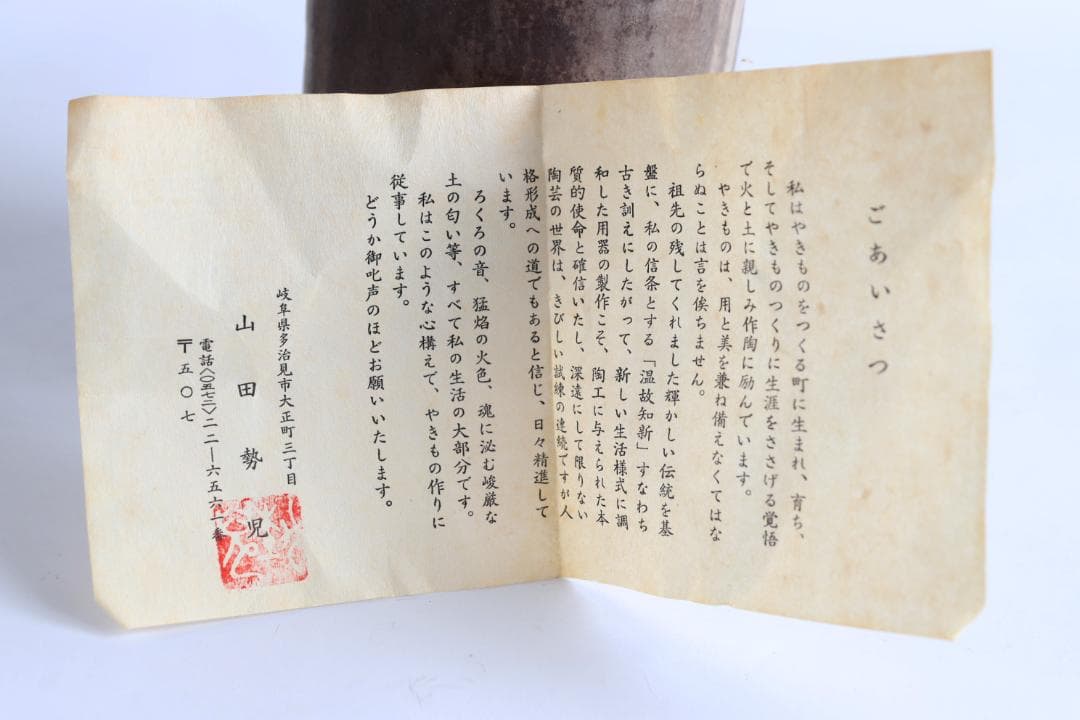 ごあいさつ
私はやきものをつくる町に生まれ、育ち、
そしてやきものつくりに生涯をささげる覚悟
で火と土に親しみ作陶に励んでいます。
やきものは、用と美を兼ね備えなくてはな
らぬことは言を俟ちません。
祖先の残してくれました輝かしい伝統を基
盤に、私の信条とする「温故知新」すなわち
古き訓えにしたがって、新しい生活様式に調
和した用器の製作こそ、陶工に与えられた本
質的使命と確信いたし、深遠にして限りない
陶芸の世界は、きびしい試練の連続ですが人
格形成への道でもあると信じ、日々精進して
います。
ろくろの音、猛焰の火色、魂に泌む峻厳な
土の匂い等、すべて私の生活の大部分です。
私はこのような心構えで、やきもの作りに
従事しています。
どうか御叱声のほどお願いいたします。
岐阜県多治見市大正町三丁目
山田勢児
電話〈〇五七三〉二二―六五六一番
〒五〇七